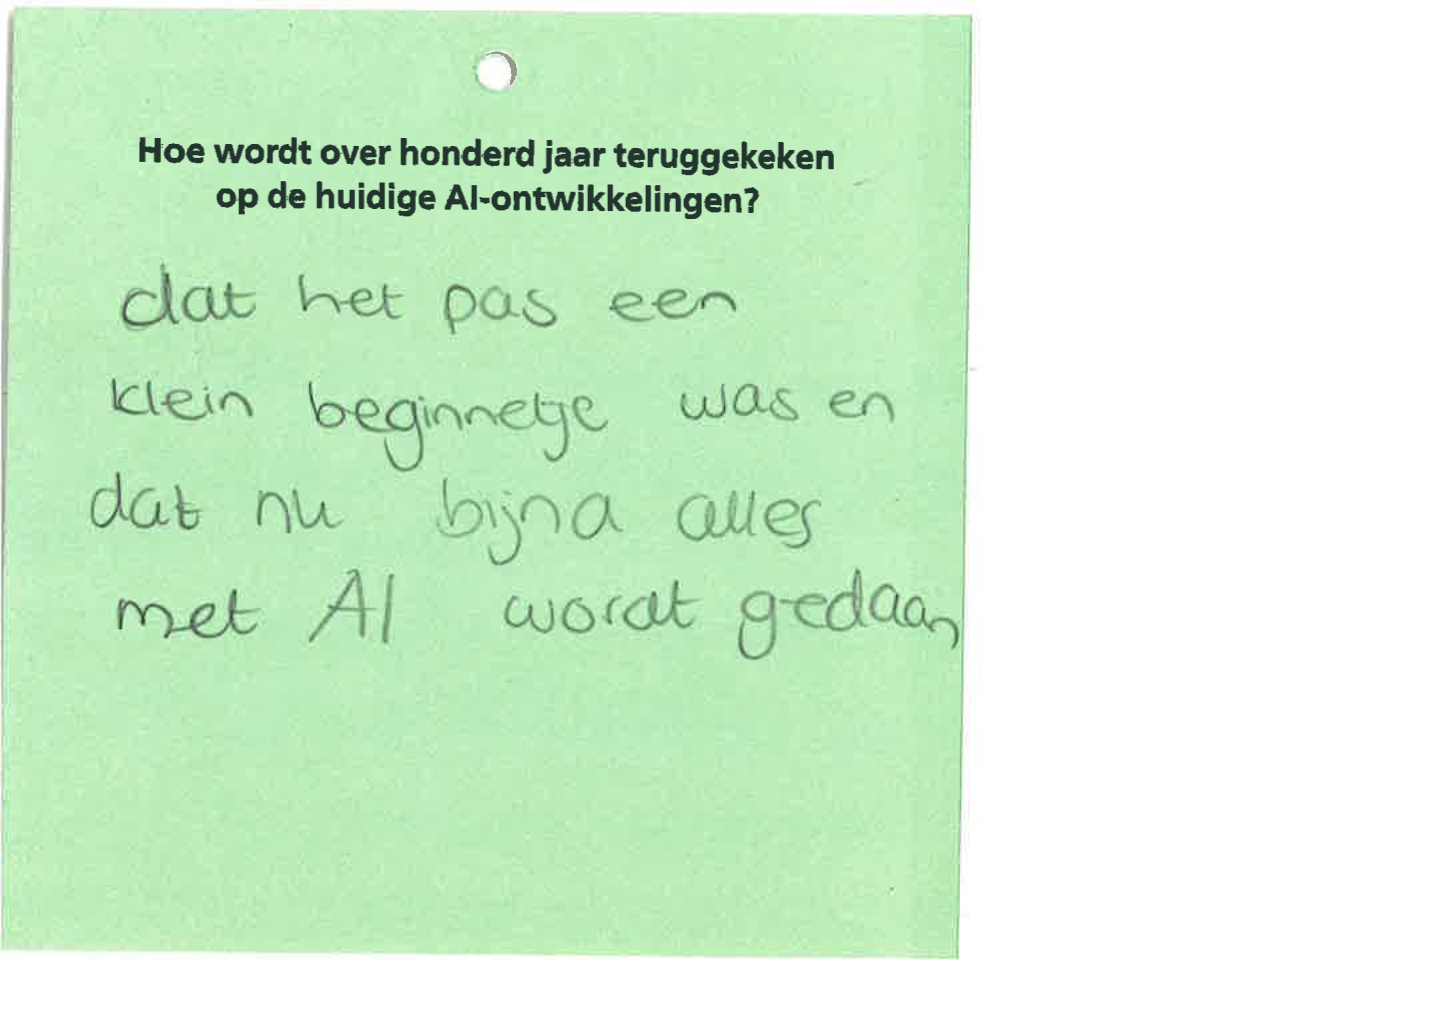 Hoe wordt over honderd jaar teruggekeken
op de huidige AI-ontwikkelingen?
dat het pas een
klein beginnetje was en
dat nu bijna alles
met AI wordt gedaan